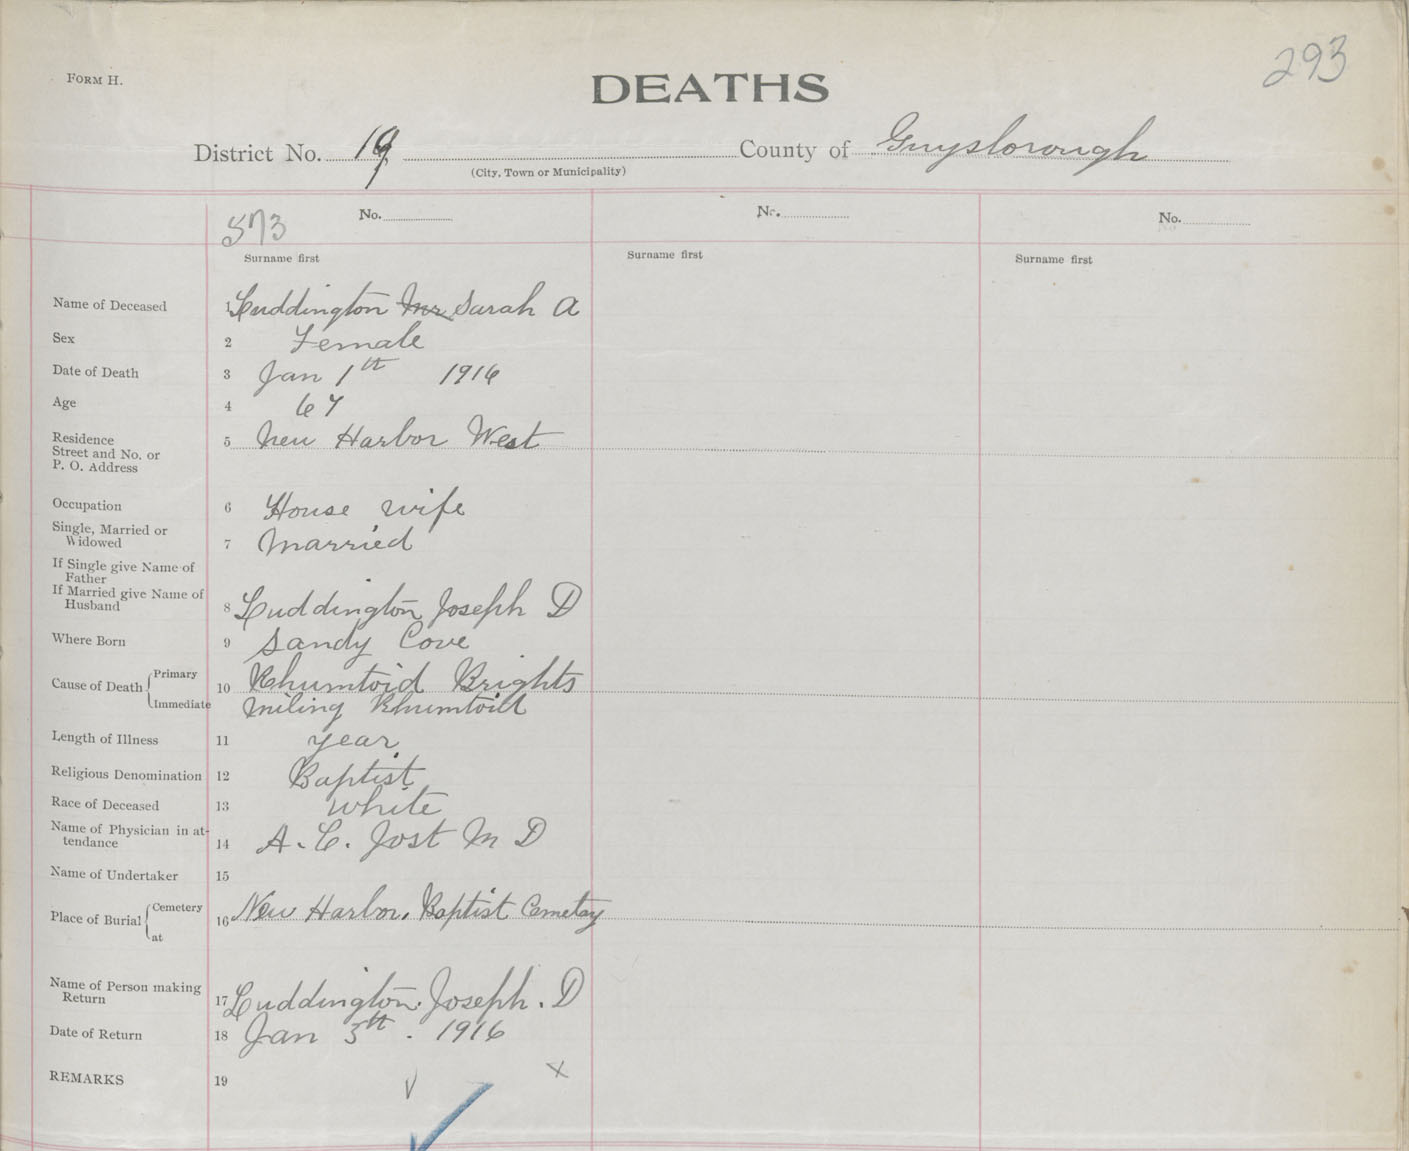 293
FORM H.
DEATHS
District No. 19 County of Guysborough
(City, Town or Municipality)
573 No. No. No.
Surname first Surname first Surname first
Name of Deceased 1 Luddington Mrs Sarah A
Sex 2 Female
Date of Death 3 Jan 1th 1916
Age 4 67
Residence
Street and No. or
P. O. Address
5 New Harbor West
Occupation 6 House wife
Single, Married or
Widowed
7 Married
If Single give Name of
Father
If Married give Name of
Husband
8 Luddington Joseph D
Where Born 9 Sandy Cove
Cause of Death Primary 10 Rhumtoid Brights
Immediate Rhumtoid
Length of Illness 11 year
Religious Denomination 12 Baptist
Race of Deceased 13 White
Name of Physician in at-
tendance
14 A. C. Jost M D
Name of Undertaker 15
Place of Burial Cemetery
at
16 New Harbor. Baptist Cemetay
Name of Person making
Return
17 Luddington. Joseph. D
Date of Return 18 Jan 3th. 1916
REMARKS 19